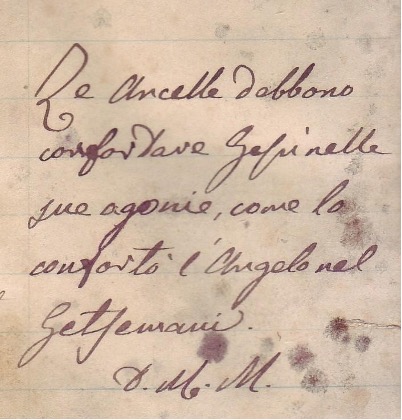 Le Ancelle debbono
confortare Gesù nelle
sue agonie, come lo
confortò l'Angelo nel
Getsemani.
D. M. M.